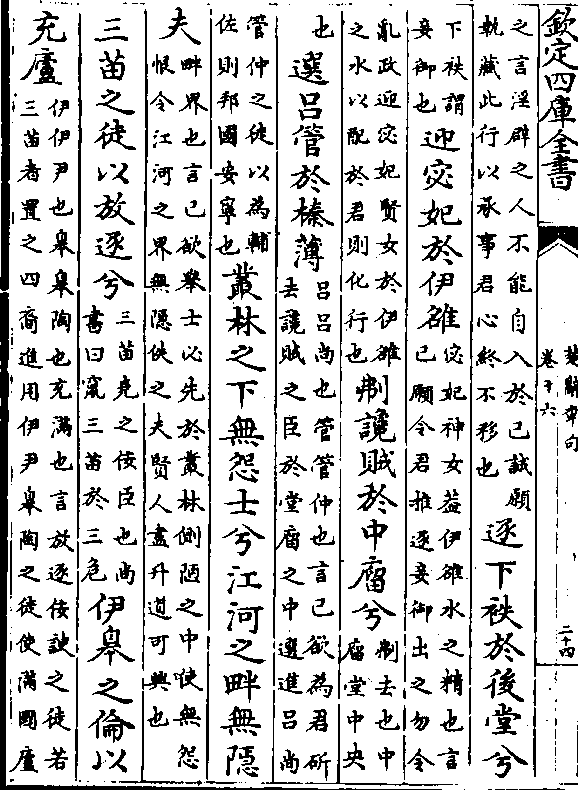 欽定四庫全書
楚辭章句
卷十六
二十四
之言淫辟之人不能自入於己誠願
執藏此行以承事君心終不移也
逐下袟於後堂兮
下袟謂
妾御也
迎宓妃於伊雒
宓妃神女葢伊雒水之精也言
己願令君推逐妾御出之勿令
亂政迎宓妃賢女於伊雒
之水以配於君則化行也
刜讒賊於中廇兮
刜去也中
廇堂中央
也
選呂管於榛薄
呂呂尚也管管仲也言己欲為君斫
去讒賊之臣於堂廇之中選進呂尚
管仲之徒以為輔
佐則邦國安寧也
叢林之下無怨士兮江河之畔無隱
夫
畔界也言己欲舉士必先於叢林側陋之中使無怨
恨令江河之界無隱佚之夫賢人盡升道可興也
三苗之徒以放逐兮
三苗堯之佞臣也尚
書曰竄三苗於三危
伊臯之倫以
充廬
伊伊尹也臯臯陶也充滿也言放逐佞諛之徒若
三苗者置之四裔進用伊尹臯陶之徒使滿國廬